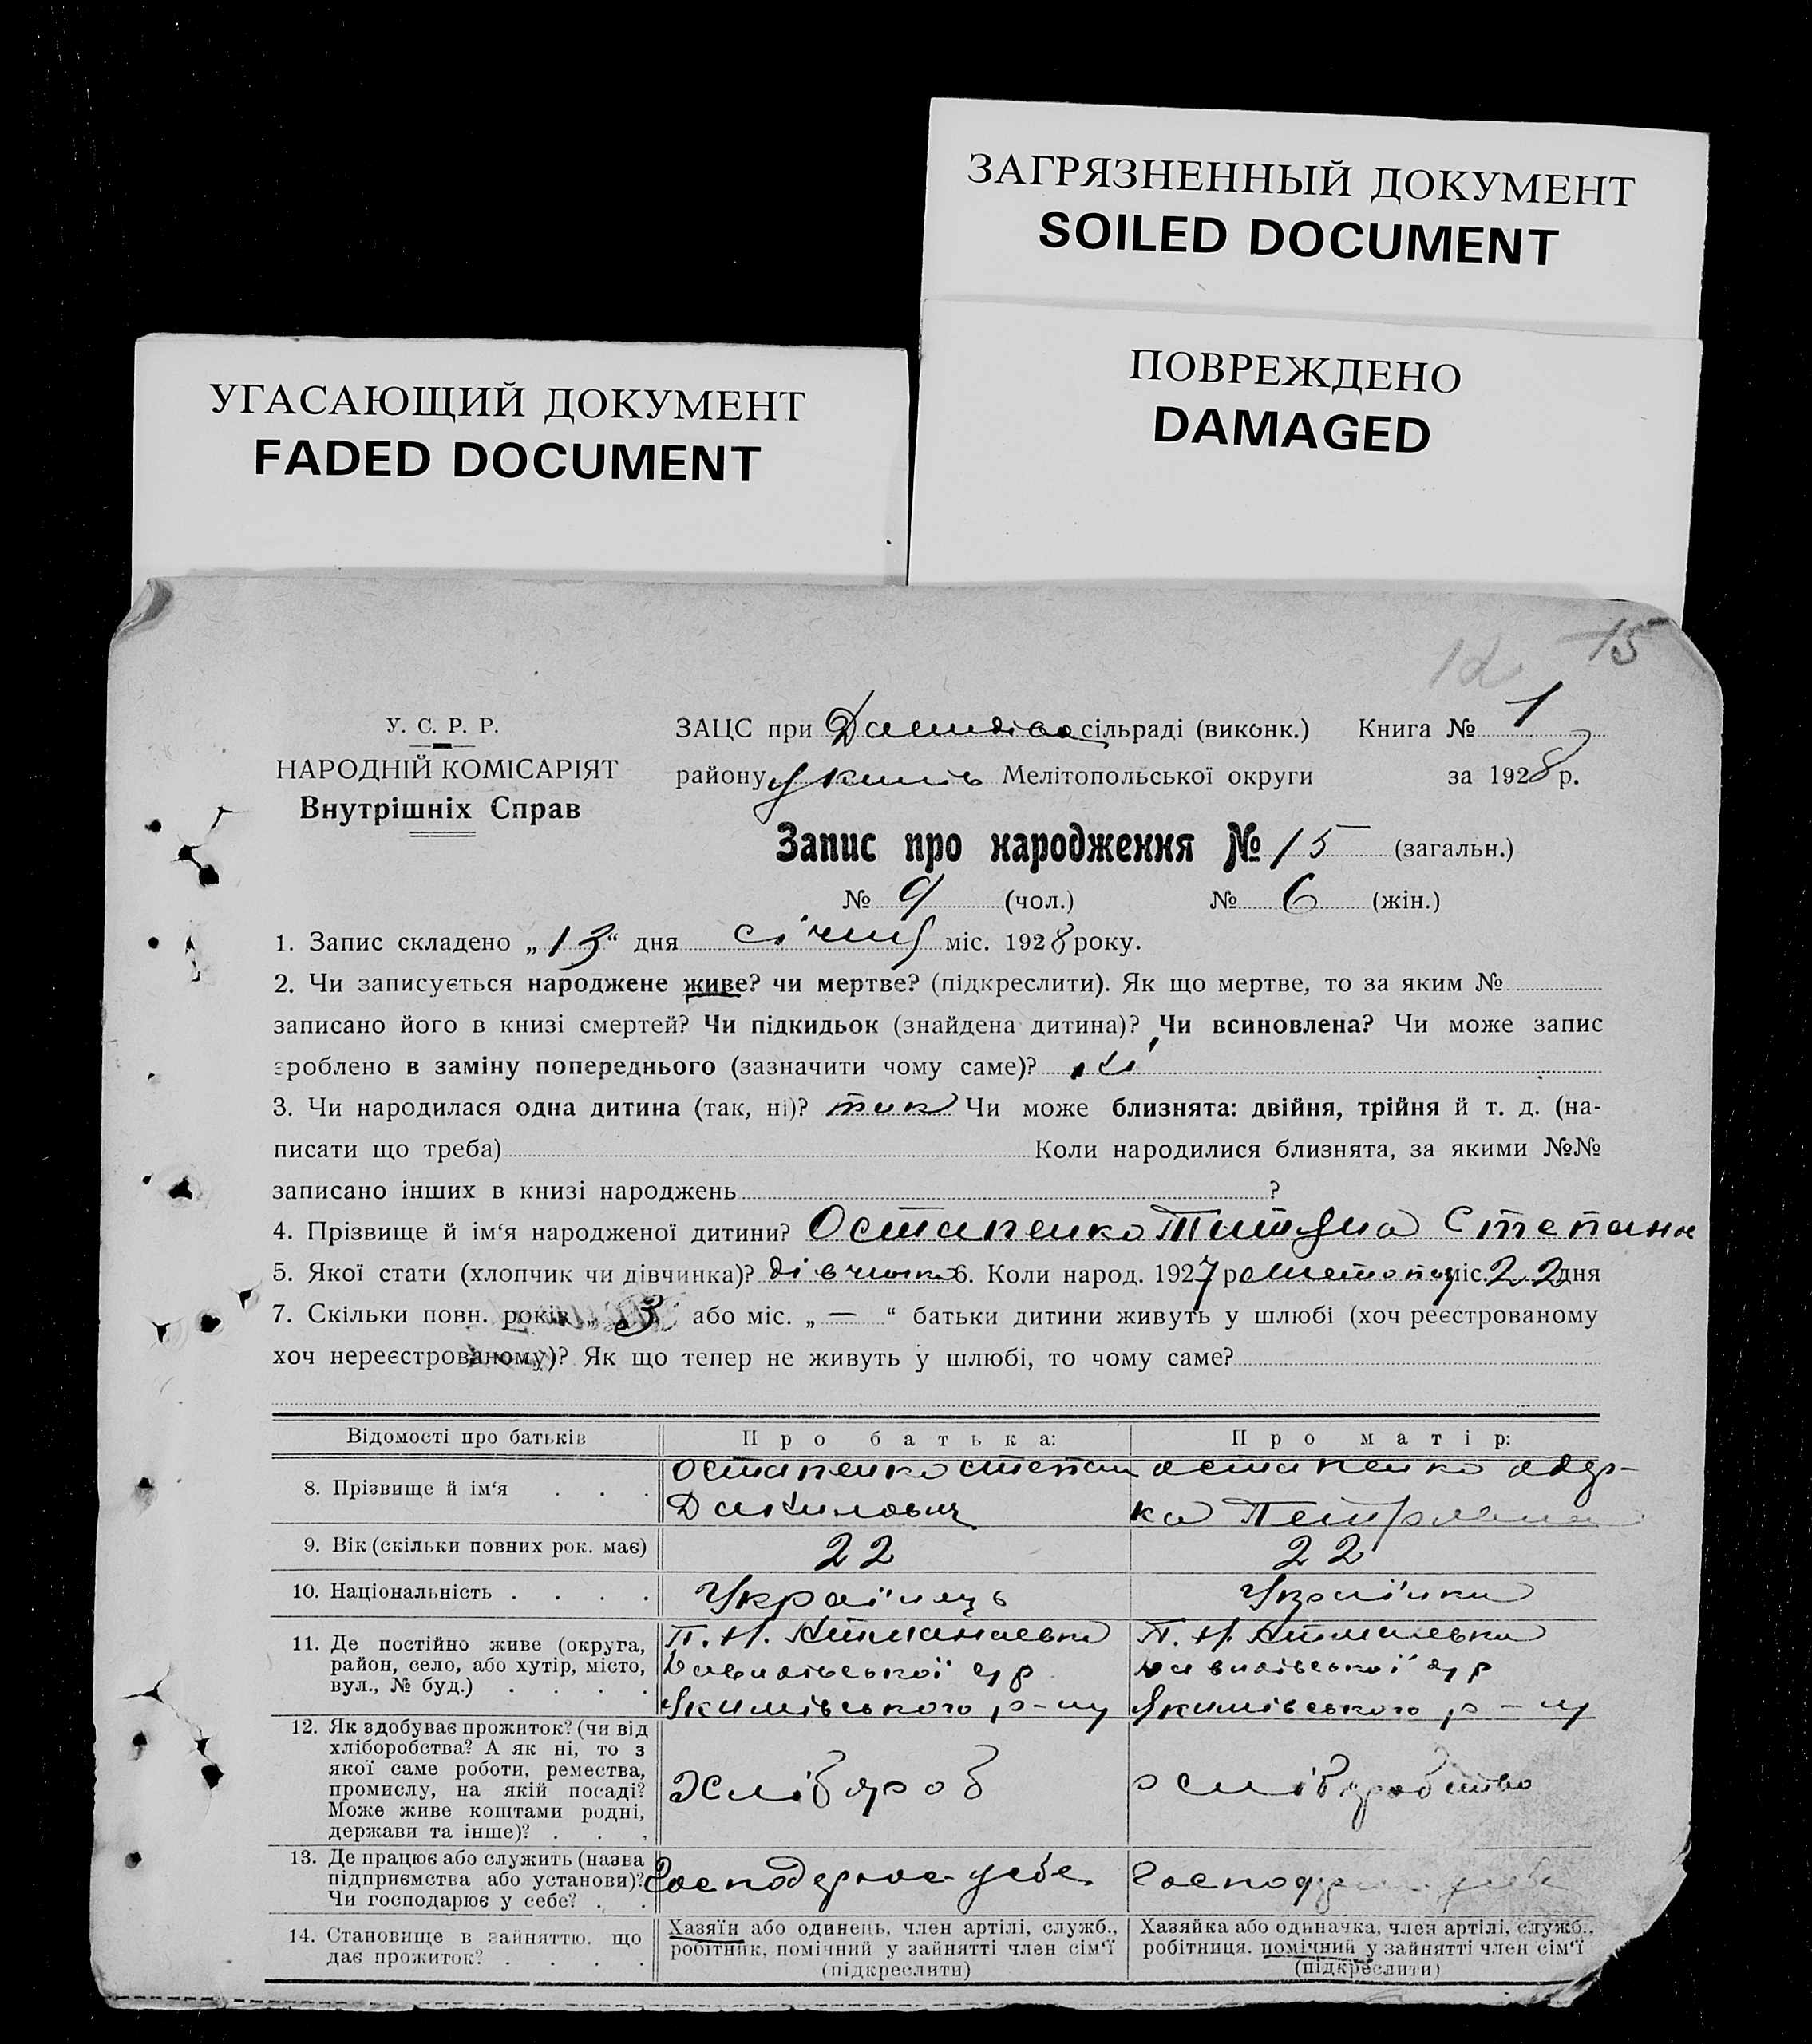 ЗАГРЯЗНЕННЫЙ ДОКУМЕНТ
SOILED DOCUMENT
ПОВРЕЖДЕНО
DAMAGED
УГАСАЮЩИЙ ДОКУМЕНТ
FADED DOCUMENT
15
У. С. Р. Р.
НАРОДНІЙ КОМІСАРІЯТ
Внутрішніх Справ
ЗАЦС при сільраді (виконк.) Книга № 1
району Мелітопольської округи за 1928 р.
Запис про народження № 15 (загальн.)
№ 9 (чол.) № 6 (жін.)
1. Запис складено „13“ дня січня міс. 1928 року.
2. Чи записується народжене живе? чи мертве? (підкреслити). Як що мертве, то за яким №
записано його в книзі смертей? Чи підкидьок (знайдена дитина)? Чи всиновлена? Чи може запис
зроблено в заміну попереднього (зазначити чому саме)?
3. Чи народилася одна дитина (так, ні)? так Чи може близнята: двійня, трійня й т. д. (на-
писати що треба) Коли народилися близнята, за якими №№
записано інших в книзі народжень ?
4. Прізвище й ім‘я народженої дитини? Остапенко Титяна Степана
5. Якої стати (хлопчик чи дівчинка)? дівчинка 6. Коли народ. 1927 р. міс. 22 дня
7. Скільки повн. років „ 3 “ або міс. „ — “ батьки дитини живуть у шлюбі (хоч реєстрованому
хоч нереєстрованому)? Як що тепер не живуть у шлюбі, то чому саме?
Відомості про батьків
Про батька:
Про матір:
8. Прізвище й ім‘я . . .
Остапенко Степан
Данилович
Остапенко
9. Вік (скільки повних рок. має)
22
22
10. Національність . . . .
Українець
Українка
11. Де постійно живе (округа,
район, село, або хутір, місто,
вул., № буд.) . . . .
П. Н. Атманаевка
Давидівської с/р
Якимівського р-ну
П. Н.
Давидівської с/р
Якимівського р-ну
12. Як здобуває прожиток? (чи від
хліборобства? А як ні, то з
якої саме роботи, ремества,
промислу, на якій посаді?
Може живе коштами родні,
держави та інше)? . . .
Хлібороб
хліборобство
13. Де працює або служить (назва
підприємства або установи)?
Чи господарює у себе? . .
у себе
14. Становище в зайняттю, що
дає прожиток? . . . .
Хазяїн або одинець, член артілі, служб.,
робітник, помічний у зайнятті член сім‘ї
(підкреслити)
Хазяйка або одиначка, член артілі, служб.,
робітниця, помічний у зайнятті член сім‘ї
(підкреслити)